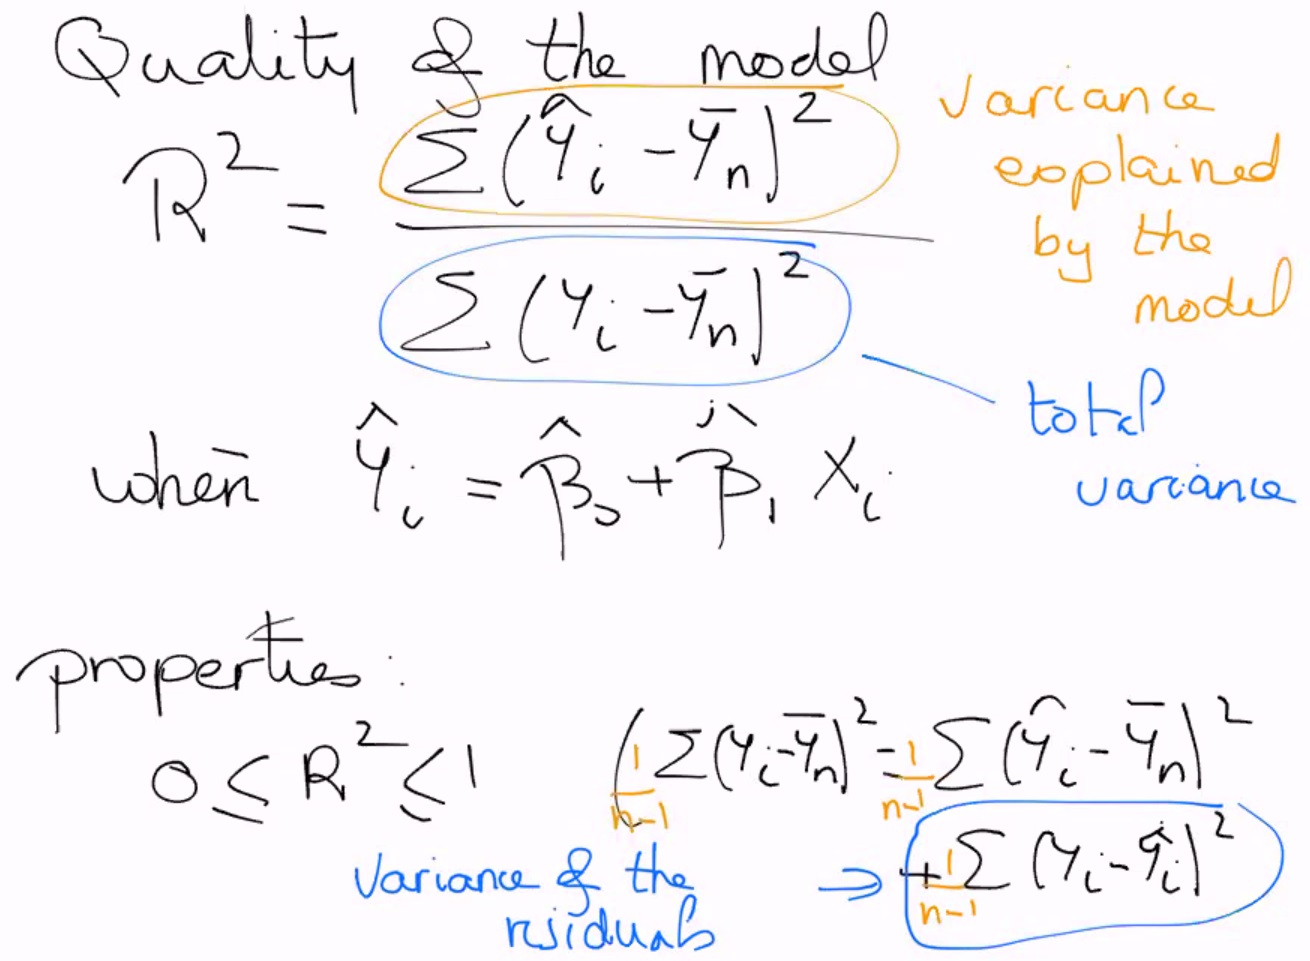 Quality of the model
R² = Σ(Ŷᵢ - Ȳₙ)² / Σ(Yᵢ - Ȳₙ)²
variance
explained
by the
model
total
variance
when Ŷᵢ = β̂₀ + β̂₁ Xᵢ
properties:
0 ≤ R² ≤ 1
( 1/n-1 Σ(Yᵢ - Ȳₙ)² = 1/n-1 Σ(Ŷᵢ - Ȳₙ)²
+ 1/n-1 Σ(Yᵢ - Ŷᵢ)²
Variance of the ⇒
residuals